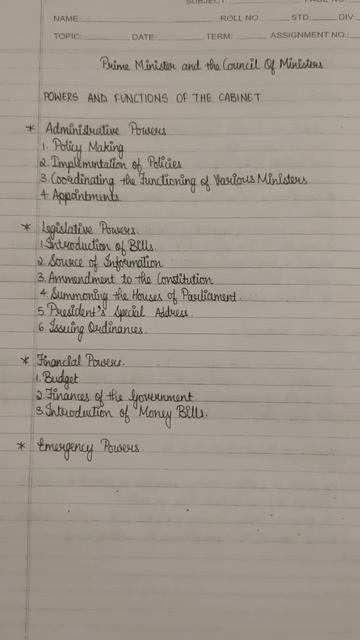 SUBJECT:
NAME: ROLL NO. STD: DIV:
TOPIC: DATE: TERM: ASSIGNMENT NO.:
Prime Minister and the Council Of Ministers
POWERS AND FUNCTIONS OF THE CABINET
* Administrative Powers
1. Policy Making
2. Implemintation of Policies
3. Coordinating the Functioning of Various Ministers
4. Appointments
* Legislative Powers.
1. Introduction of Bills
2. Source of Information
3. Ammendment to the Constitution
4. Summoning the Houses of Parliament.
5. President's Special Address.
6. Issuing Ordinances.
* Financial Powers.
1. Budget
2. Finances of the Government
3. Introduction of Money Bills.
* Emergency Powers.